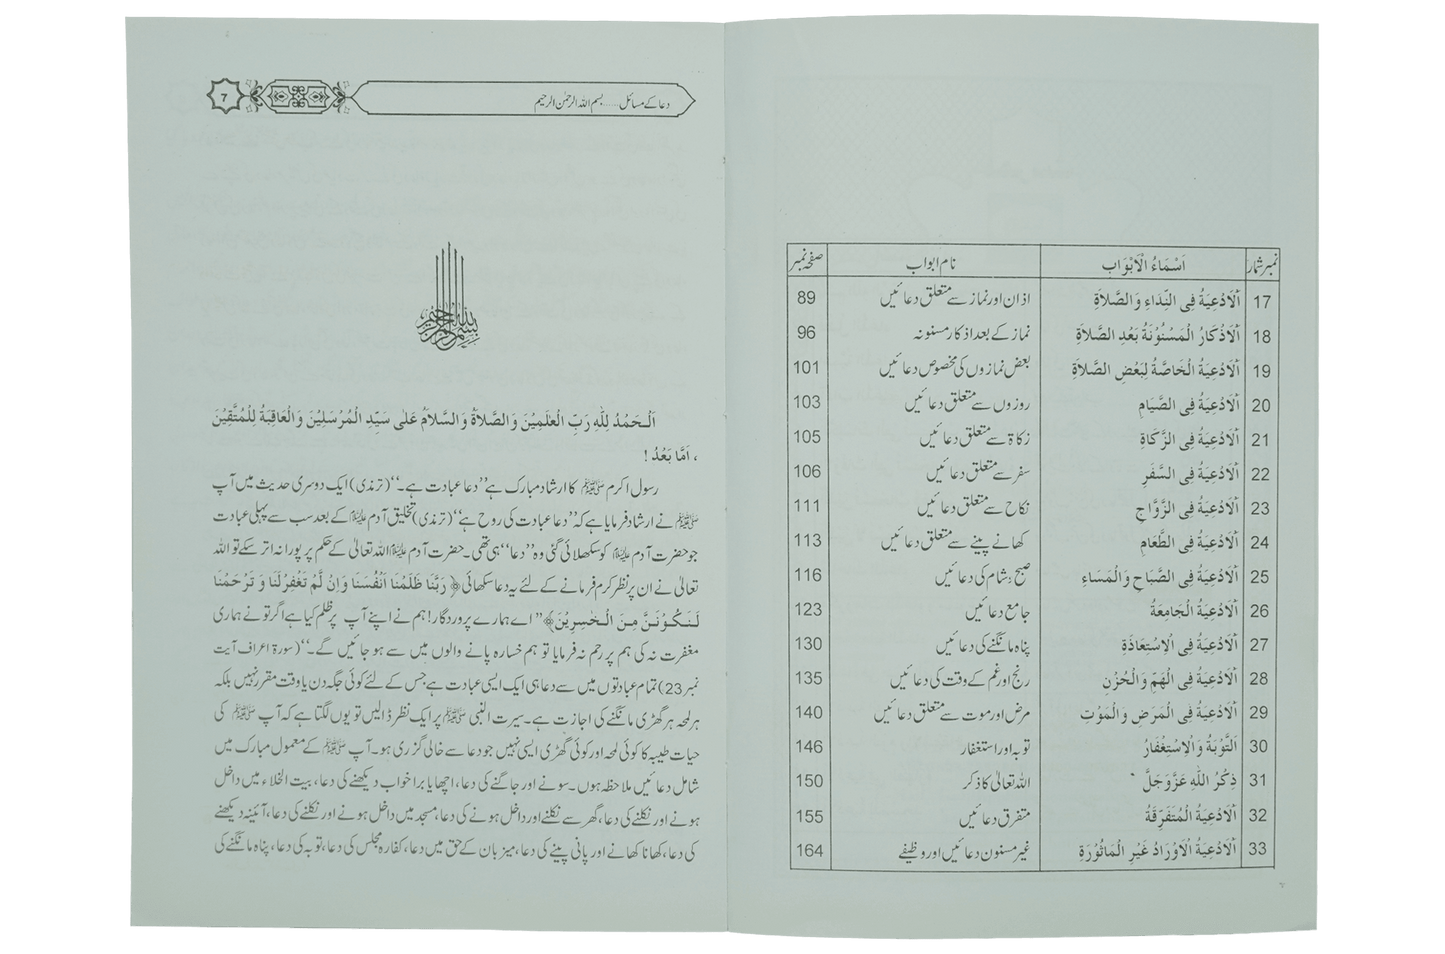 نمبر شمار اَسْمَاءُ الْاَبْوَاب نام ابواب صفحہ نمبر
17 اَلْاَدْعِیَةُ فِی النِّدَاءِ وَالصَّلاَةِ اذان اور نماز سے متعلق دعائیں 89
18 اَلْاَذْکَارُ الْمَسْنُوْنَةُ بَعْدِ الصَّلاَةِ نماز کے بعد اذکار مسنونہ 96
19 اَلْاَدْعِیَةُ الْخَاصَّةُ لِبَعْضِ الصَّلاَةِ بعض نمازوں کی مخصوص دعائیں 101
20 اَلْاَدْعِیَةُ فِی الصِّیَامِ روزوں سے متعلق دعائیں 103
21 اَلْاَدْعِیَةُ فِی الزَّکَاةِ زکاۃ سے متعلق دعائیں 105
22 اَلْاَدْعِیَةُ فِی السَّفَرِ سفر سے متعلق دعائیں 106
23 اَلْاَدْعِیَةُ فِی الزَّوَّاجِ نکاح سے متعلق دعائیں 111
24 اَلْاَدْعِیَةُ فِی الطَّعَامِ کھانے پینے سے متعلق دعائیں 113
25 اَلْاَدْعِیَةُ فِی الصَّبَاحِ وَالْمَسَاءِ صبح، شام کی دعائیں 116
26 اَلْاَدْعِیَةُ الْجَامِعَةُ جامع دعائیں 123
27 اَلْاَدْعِیَةُ فِی الْاِسْتِعَاذَةِ پناہ مانگنے کی دعائیں 130
28 اَلْاَدْعِیَةُ فِی الْهَمِّ وَالْحُزْنِ رنج اور غم کے وقت کی دعائیں 135
29 اَلْاَدْعِیَةُ فِی الْمَرَضِ وَالْمَوْتِ مرض اور موت سے متعلق دعائیں 140
30 اَلتَّوْبَةُ وَالْاِسْتِغْفَارُ توبہ اور استغفار 146
31 ذِکْرُ اللّٰهِ عَزَّوَجَلَّ اللہ تعالیٰ کا ذکر 150
32 اَلْاَدْعِیَةُ الْمُتَفَرِّقَةُ متفرق دعائیں 155
33 اَلْاَدْعِیَةُ الْاَوْرَادُ غَیْرِ الْمَاثُوْرَةِ غیر مسنون دعائیں اور وظیفے 164
دعا کے مسائل..... بسم اللہ الرحمٰن الرحیم 7
بسم الله الرحمن الرحيم
اَلْحَمْدُ لِلّٰهِ رَبِّ الْعٰلَمِیْنَ وَالصَّلاَةُ وَالسَّلاَمُ عَلٰی سَیِّدِ الْمُرْسَلِیْنَ وَالْعَاقِبَةُ لِلْمُتَّقِیْنَ
، اَمَّا بَعْدُ !
رسول اکرم ﷺ کا ارشاد مبارک ہے ”دعا عبادت ہے۔“ (ترمذی) ایک دوسری حدیث میں آپ
ﷺ نے ارشاد فرمایا ہے کہ ”دعا عبادت کی روح ہے“ (ترمذی) تخلیق آدم علیہ السلام کے بعد سب سے پہلی عبادت
جو حضرت آدم علیہ السلام کو سکھلائی گئی وہ ”دعا“ ہی تھی۔ حضرت آدم علیہ السلام اللہ تعالیٰ کے حکم پر پورا نہ اتر سکے تو اللہ
تعالیٰ نے ان پر نظر کرم فرمانے کے لئے یہ دعا سکھائی ﴿ رَبَّنَا ظَلَمْنَا اَنْفُسَنَا وَاِنْ لَّمْ تَغْفِرْلَنَا وَ تَرْحَمْنَا
لَنَکُوْنَنَّ مِنَ الْخٰسِرِیْنَ﴾ ”اے ہمارے پروردگار! ہم نے اپنے آپ پر ظلم کیا ہے اگر تو نے ہماری
مغفرت نہ کی ہم پر رحم نہ فرمایا تو ہم خسارہ پانے والوں میں سے ہو جائیں گے۔“ (سورۃ اعراف آیت
نمبر 23) تمام عبادتوں میں سے دعا ہی ایک ایسی عبادت ہے جس کے لئے کوئی جگہ دن یا وقت مقرر نہیں بلکہ
ہر لمحہ ہر گھڑی مانگنے کی اجازت ہے۔ سیرت النبی ﷺ پر ایک نظر ڈالیں تو یوں لگتا ہے کہ آپ ﷺ کی
حیات طیبہ کا کوئی لمحہ اور کوئی گھڑی ایسی نہیں جو دعا سے خالی گزری ہو۔ آپ ﷺ کے معمول مبارک میں
شامل دعائیں ملاحظہ ہوں۔ سونے اور جاگنے کی دعا، اچھا یا برا خواب دیکھنے کی دعا، بیت الخلاء میں داخل
ہونے اور نکلنے کی دعا، گھر سے نکلنے اور داخل ہونے کی دعا، مسجد میں داخل ہونے اور نکلنے کی دعا، آئینہ دیکھنے
کی دعا، کھانا کھانے اور پانی پینے کی دعا، میزبان کے حق میں دعا، کفارہ مجلس کی دعا، توبہ کی دعا، پناہ مانگنے کی